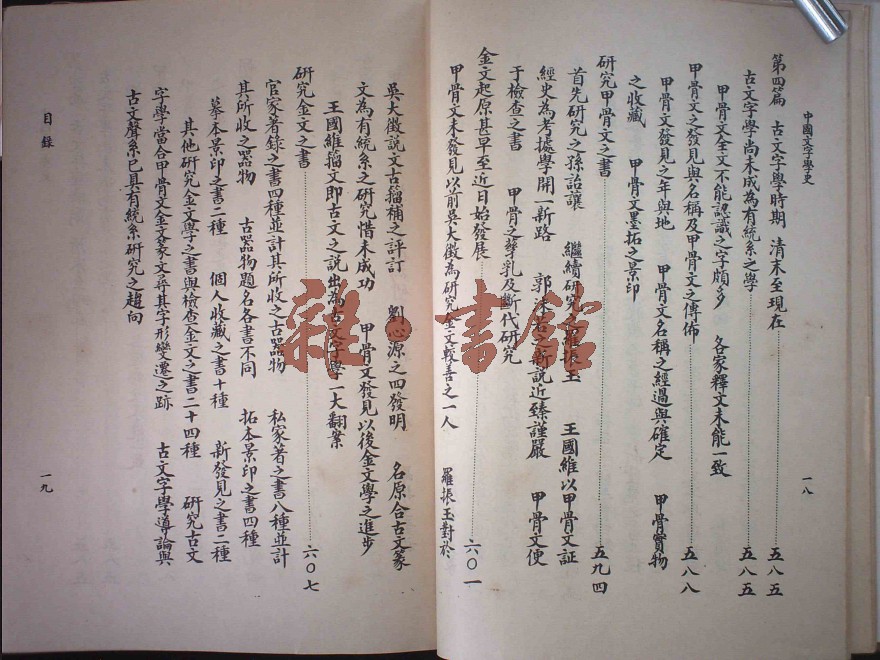 中國文字學史
一八
第四篇 古文字學時期 清末至現在……五八五
古文字學尚未成為有統系之學……五八五
甲骨文全文不能認識之字頗多 各家釋文未能一致
甲骨文之發見與名稱及甲骨文之傳佈……五八八
甲骨文發見之年與地 甲骨文名稱之經過與確定 甲骨實物
之收藏 甲骨文墨拓之景印
研究甲骨文之書……五九四
首先研究之孫詒讓 繼續研究之羅振玉 王國維以甲骨文証
經史為考據學開一新路 郭沫若之新說近臻謹嚴 甲骨文便
于檢查之書 甲骨之孳乳及斷代研究
金文起原甚早至近日始發展……六〇一
甲骨文未發見以前吳大澂為研究金文較善之一人 羅振玉對於
吳大澂說文古籀補之評訂 劉心源之四發明 名原合古文篆
文為有統系之研究惜未成功 甲骨文發見以後金文學之進步
王國維籀文即古文之說出為古文字學一大翻案
研究金文之書……六〇七
官家著錄之書四種並計其所收之古器物 私家著之書八種並計
其所收之器物 古器物題名各書不同 拓本景印之書四種
摹本景印之書二種 個人收藏之書十種 新發見之書二種
其他研究金文學之書與檢查金文之書二十四種 研究古文
字學當合甲骨文金文篆文尋其字形變遷之跡 古文字學導論與
古文聲系已具有統系研究之趨向
目錄
一九
雜·書館